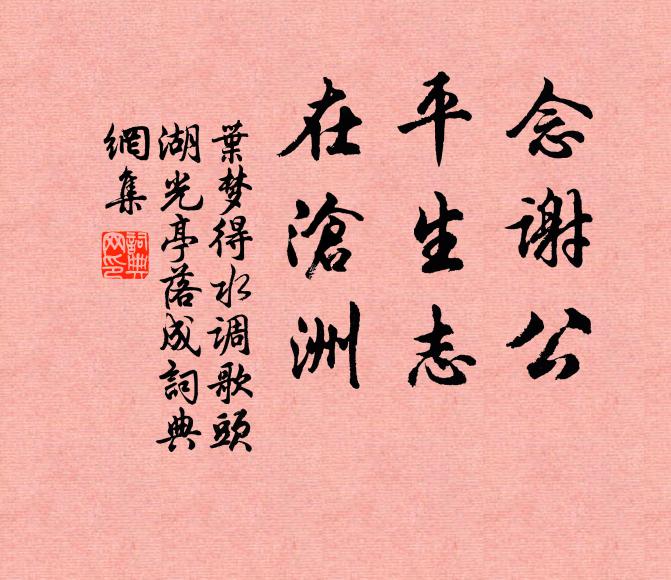 念谢公
平生志
在滄洲
葉梦得水调歌頭
湖光亭落成詞典
網集
詞典網印